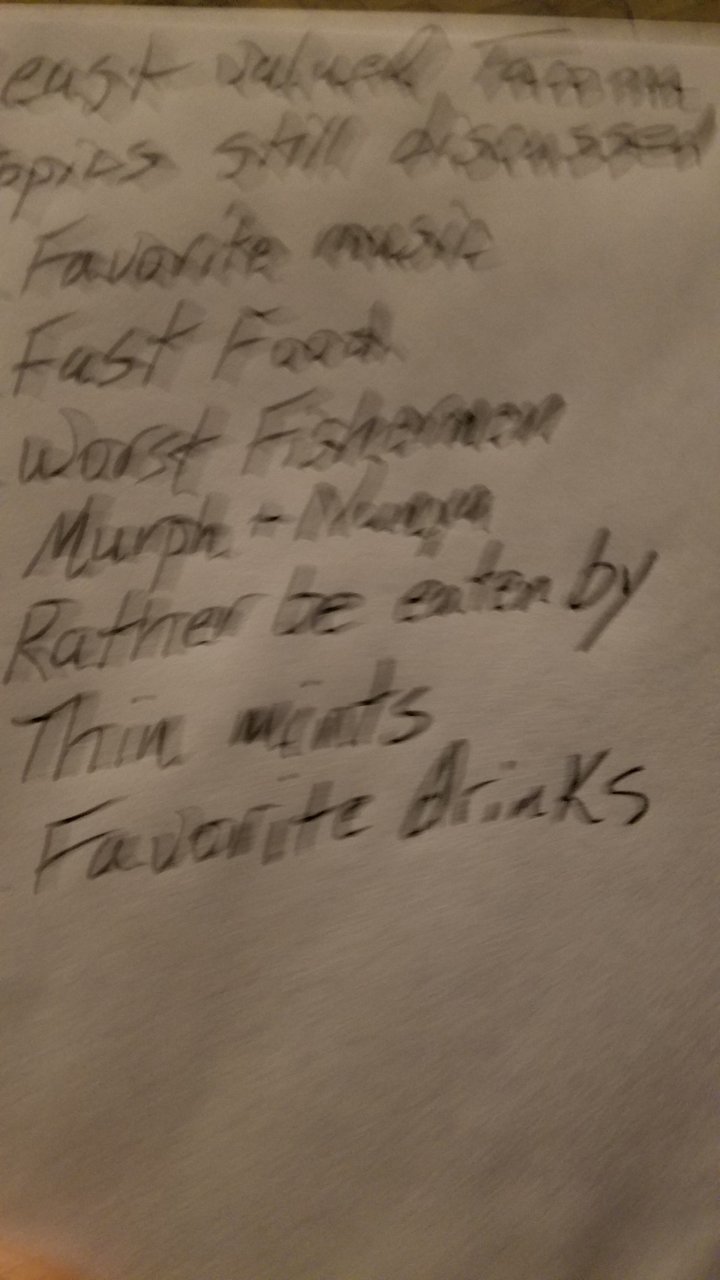 east valued
opics still discussed
Favorite music
Fast Food
Worst Fishermen
Murph +
Rather be eaten by
Thin mints
Favorite drinks